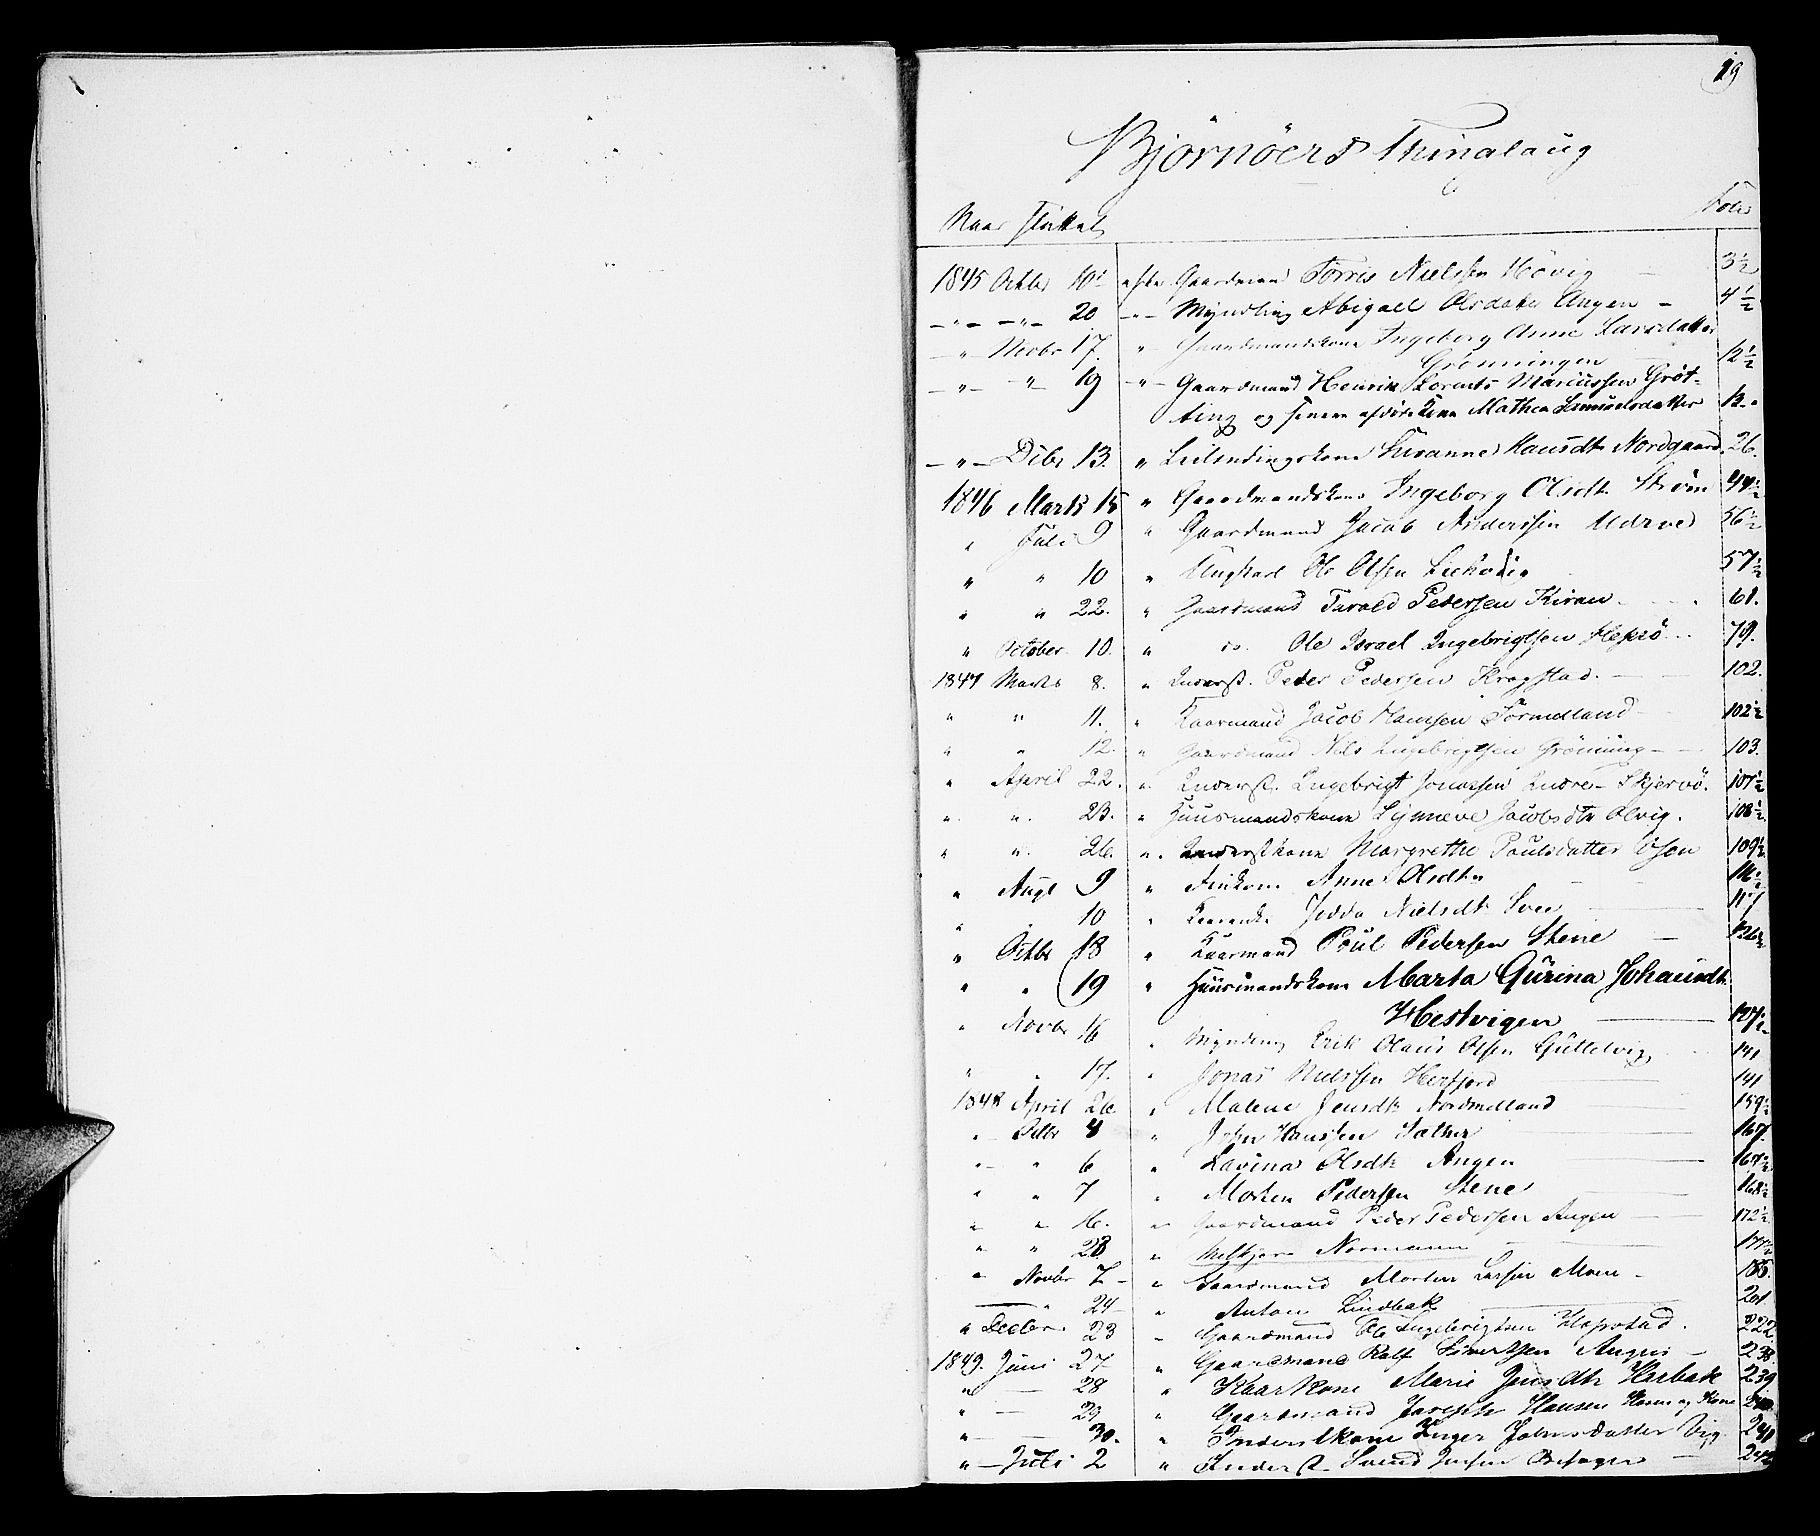 19
Bjørnöers Thinglaug
Naar skiftet Folio
1845 Octbr 10 efter Gaardmand Torris Nielsen Hövig — 3½
— " — — " — 20 — " — Myndling Abigael Olsdatter Angen — 4½
— " Novbr 17. " Gaardmandskone Ingeborg Anne Larsdatter
Grønningen — 12½
— " — " 19 — " — Gaardmand Henrik Lorents Mariussen Grøt-
ting og Kone Mathea Samuelsdatter
— " — Dcbr 13. " Leilendingskone Susanne Hansdt. Nordgaard 26.
1846 Marts 15 " Gaardmandskone Ingeborg Olsdt. Strøm 44½
" Juli 9 " Gaardmand Jacob Anderssen 56½
" " 10 " Ungkarl Ole Olsen 57½
" " 22. " Gaardmand Tarald Pedersen Kiran. 61.
" October 10. " do. Ole Israel Ingebrigtsen 79.
1847 Marts 8. " Inderst. Peder Pedersen Kragstad. — 102.
" " 11. " Kaarmand Jacob Hansen Sörmelland — 102½
" " 12. " Gaardmand Nils Ingebrigtsen Gröning — 103.
" April 22. " Inderst. Engebrigt Jonassen Indre-Skjervö. 107½
" " 23. " Huusmandskone Synneve Jacobsdtr Olvig. 108½
" " 26. " Inderstkone Margrethe Paulsdatter Osen 109½
" Augt 9 " Anne Olsdtr
" " 10 " Nielsdt. 117
" Octbr 18 " Kaarmand Poul Pedersen Stene —
" " 19 " Huusmandskone Marta Gurina Johansdtr.
Hestvigen —
" Novbr 16 " Myndling Erik Olaus Olsen 141
" " 17. " Jonas Nielssen Herfjord — 141
1848 April 26. " Malene Jensdtr Nordmelland — 159½
" Octbr 4 " John Hanssen Sæther — 167.
" " 6 " Lavina Olsdtr Angen — 167½
" " 7 " Morten Pedersen Stene — 168½
" " 16. " Gaardmand Peder Pedersen Angen — 172½
" " 28 " Normann — 177½
" Novbr 7 — " Gaardmand Morten Larsen Moen — 185.
— " 24 — " Anton Lindbak — 201
" Decbr 23 " Gaardmand Ole Ingebrigtsen Hopstad. 222
1849. Juni 27 — " Gaardmand Rolf Sivertsen Angen — 238
" — 28 " Kaarkone Marie Jensdtr Herbak 239
" — 29 " Gaardmand Joseph Hansen og Kone 240
" — 30. " Inderstkone Inger Johnsdatter Vig 241
" — Juli 2 " Inderst. Svend Jensen — 242